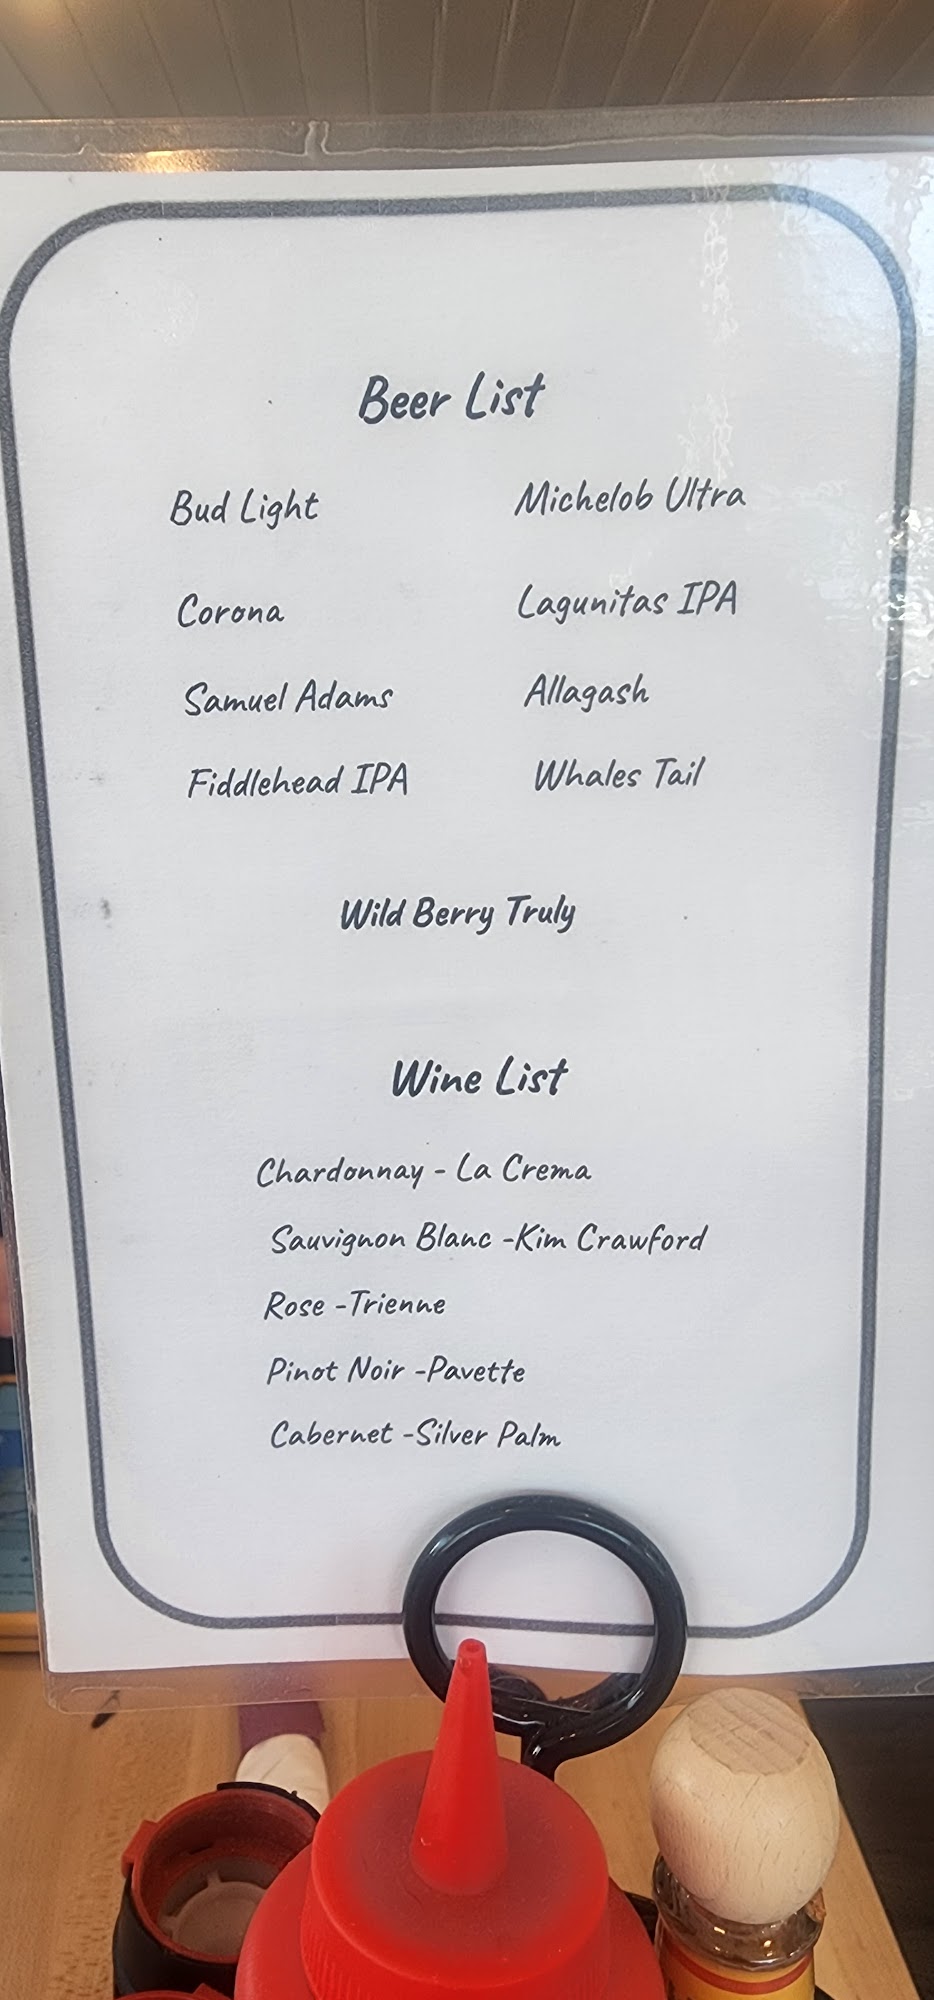 Beer List
Bud Light
Michelob Ultra
Corona
Lagunitas IPA
Samuel Adams
Allagash
Fiddlehead IPA
Whales Tail
Wild Berry Truly
Wine List
Chardonnay - La Crema
Sauvignon Blanc -Kim Crawford
Rose -Trienne
Pinot Noir -Pavette
Cabernet -Silver Palm